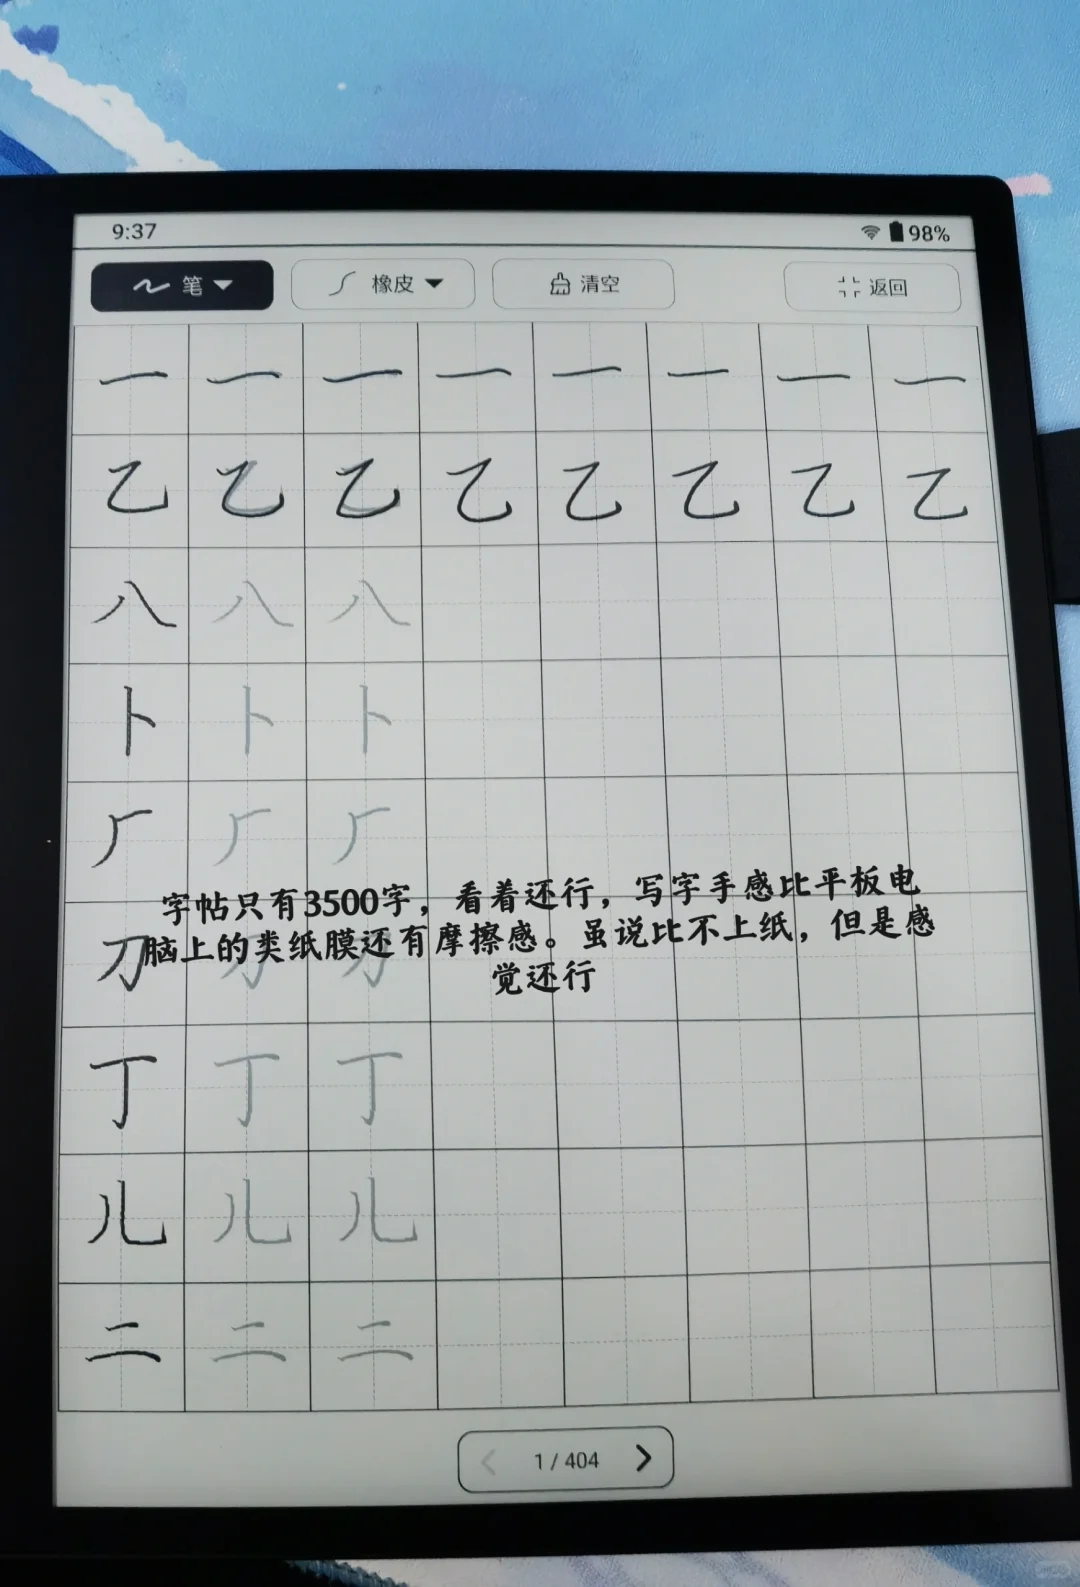 9:37 98%
笔 橡皮 清空 返回
一 一 一 一 一 一 一 一
乙 乙 乙 乙 乙 乙 乙 乙
八 八 八
卜 卜 卜
厂 厂 厂
字帖只有3500字，看着还行，写字手感比平板电
脑上的类纸膜还有摩擦感。虽说比不上纸，但是感
觉还行
刀 刀 刀
丁 丁 丁
儿 儿 儿
二 二 二
1 / 404